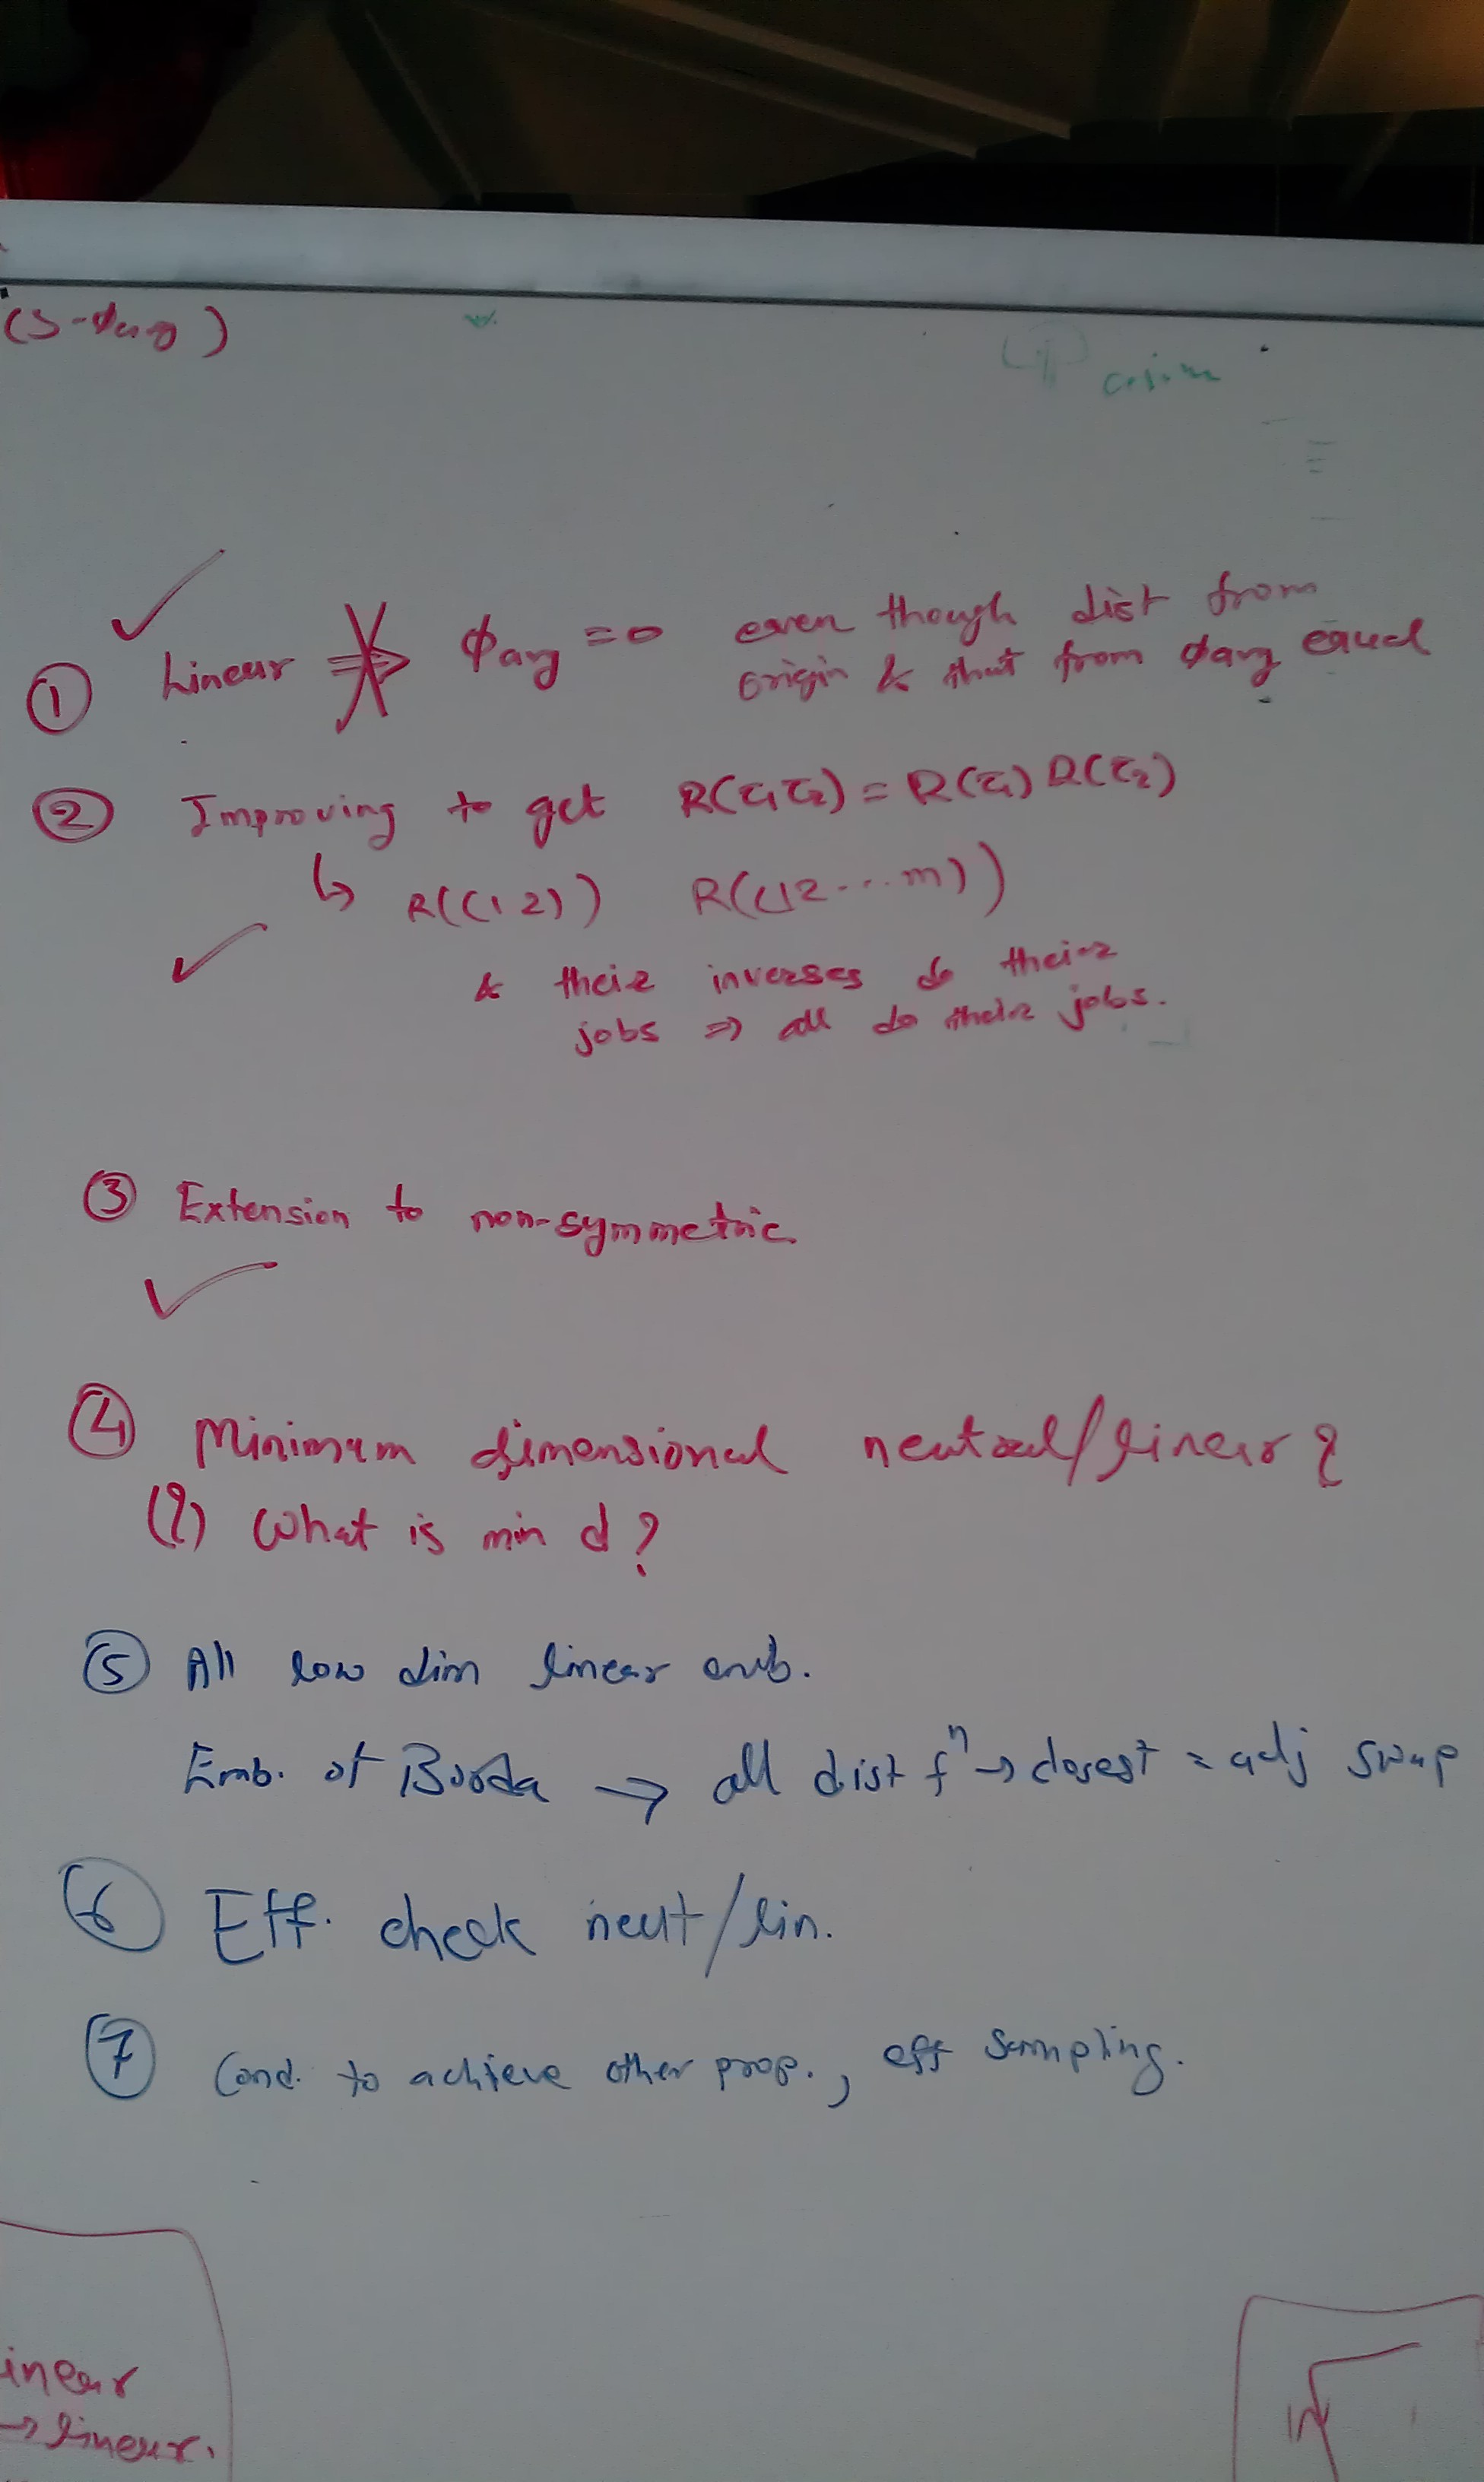 (S-φavg)
① Linear ⇏ φavg = 0 even though dist from
origin & that from φavg equal
② Improving to get R(τ₁τ₂) = R(τ₁) R(τ₂)
↳ R((1 2)) R((12...m))
& their inverses do their
jobs ⇒ all do their jobs.
③ Extension to non-symmetric
④ Minimum dimensional neutral/linear?
(?) What is min d?
⑤ All low dim linear emb.
Emb. of Borda → all dist fⁿ → closest = adj swap
⑥ Eff. check neut/lin.
⑦ Cond. to achieve other prop., eff sampling.
inear
→ linear.